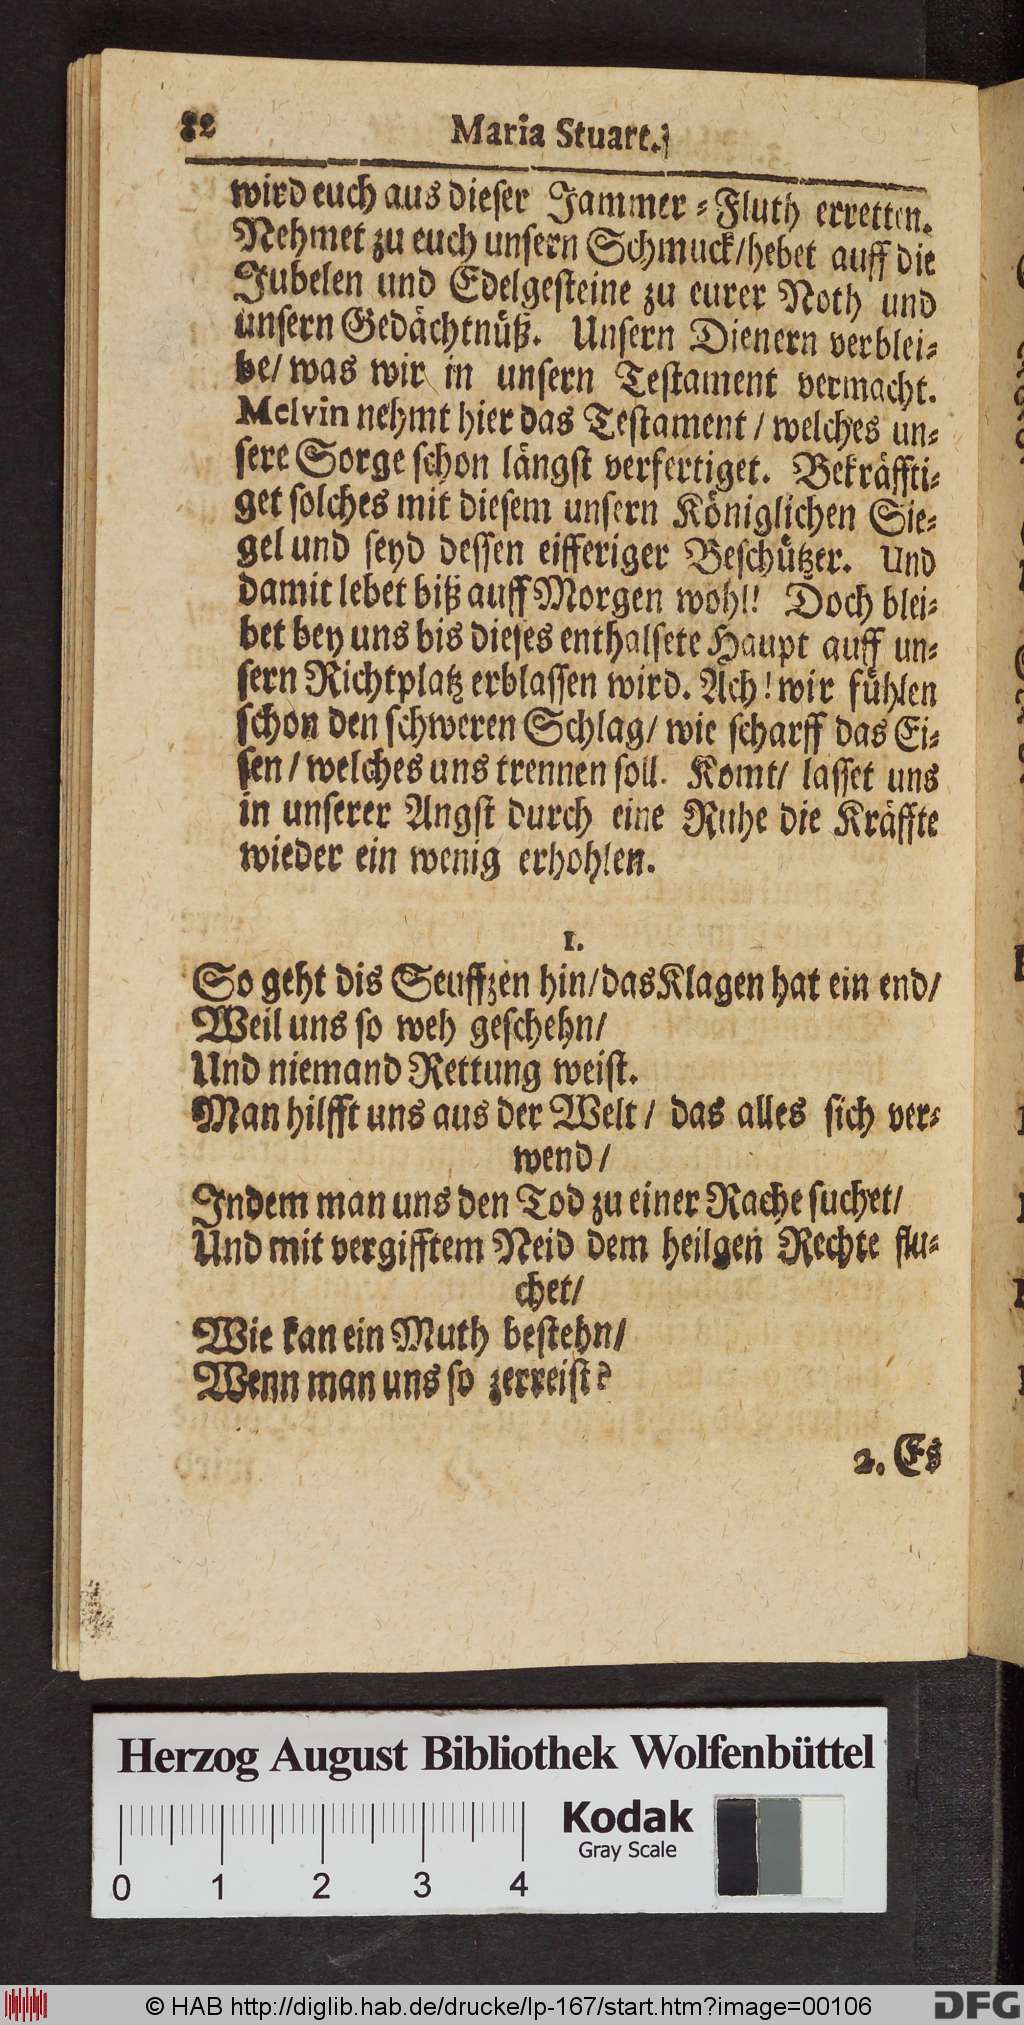 82 Maria Stuart.
wird euch aus dieser Jammer-Fluth erretten.
Nehmet zu euch unsern Schmuck/hebet auff die
Jubelen und Edelgesteine zu eurer Noth und
unsern Gedächtnüß. Unsern Dienern verblei-
be/ was wir in unsern Testament vermacht.
Melvin nehmt hier das Testament / welches un-
sere Sorge schon längst verfertiget. Bekräffti-
get solches mit diesem unsern Königlichen Sie-
gel und seyd dessen eifferiger Beschützer. Und
damit lebet biß auff Morgen wohl! Doch blei-
bet bey uns bis dieses enthalsete Haupt auff un-
sern Richtplatz erblassen wird. Ach! wir fühlen
schon den schweren Schlag/ wie scharff das Ei-
sen / welches uns trennen soll. Komt/ lasset uns
in unserer Angst durch eine Ruhe die Kräffte
wieder ein wenig erhohlen.
1.
So geht dis Seuffzen hin/das Klagen hat ein end/
Weil uns so weh geschehn/
Und niemand Rettung weist.
Man hilfft uns aus der Welt / das alles sich ver-
wend /
Indem man uns den Tod zu einer Rache suchet/
Und mit vergifftem Neid dem heilgen Rechte flu-
chet/
Wie kan ein Muth bestehn/
Wenn man uns so zerreist?
2. Es
Herzog August Bibliothek Wolfenbüttel
Kodak
Gray Scale
0 1 2 3 4
© HAB http://diglib.hab.de/drucke/lp-167/start.htm?image=00106
DFG